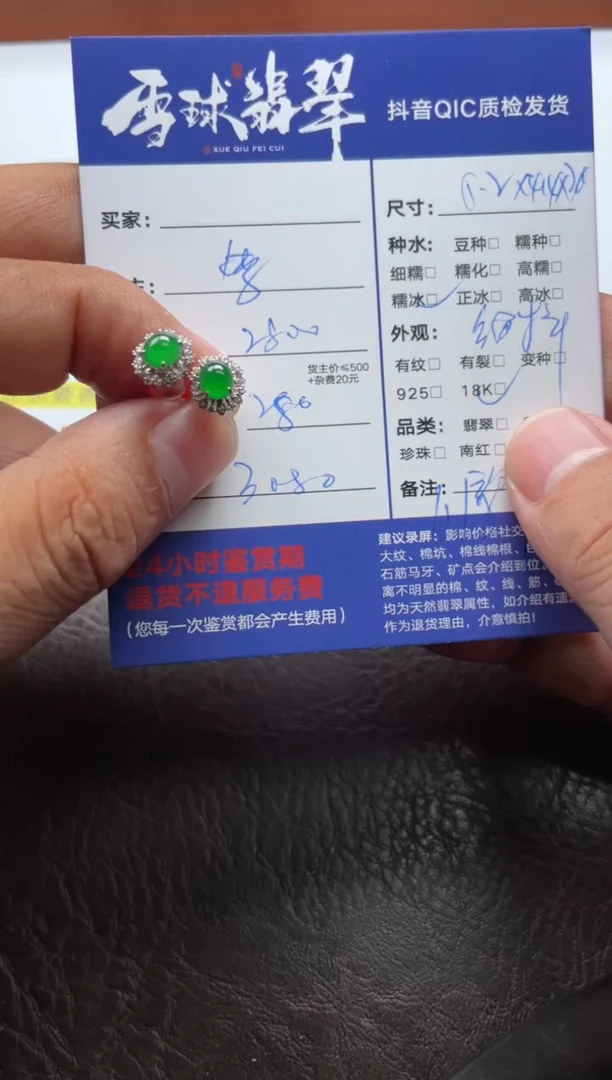 雪球翡翠
XUE QIU FEI CUI
抖音QIC质检发货
买家：
主：
2800
货主价≤500
+杂费20元
280
3080
尺寸：
种水： 豆种□ 糯种□
细糯□ 糯化□ 高糯□
糯冰□ 正冰□ 高冰□
外观：
有纹□ 有裂□ 变种□
925□ 18K□
品类： 翡翠□
珍珠□ 南红□
备注：
24小时鉴赏期
退货不退服务费
（您每一次鉴赏都会产生费用）
建议录屏：影响价格社交
大纹、棉坑、棉线棉根、
石筋马牙、矿点会介绍到位。
离不明显的棉、纹、线、筋、
均为天然翡翠属性，如介绍有遗
作为退货理由，介意慎拍！